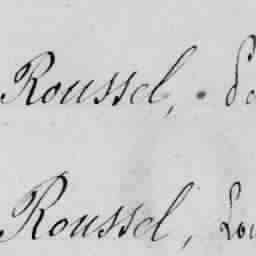 Roussel,
Roussel, Lou